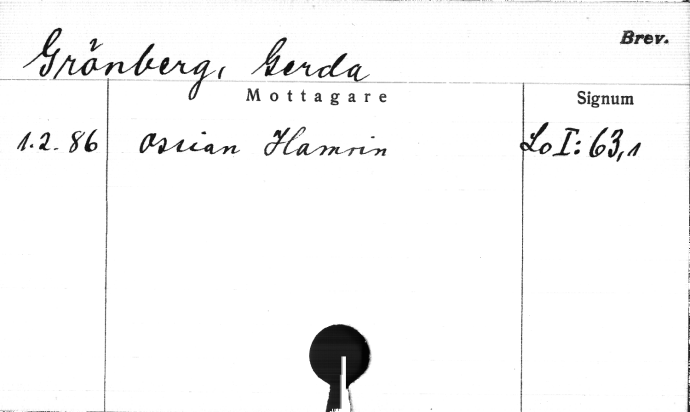 Brev.
Grönberg, Gerda
Mottagare Signum
1.2.86 Ossian Hamrin Lo I: 63,1